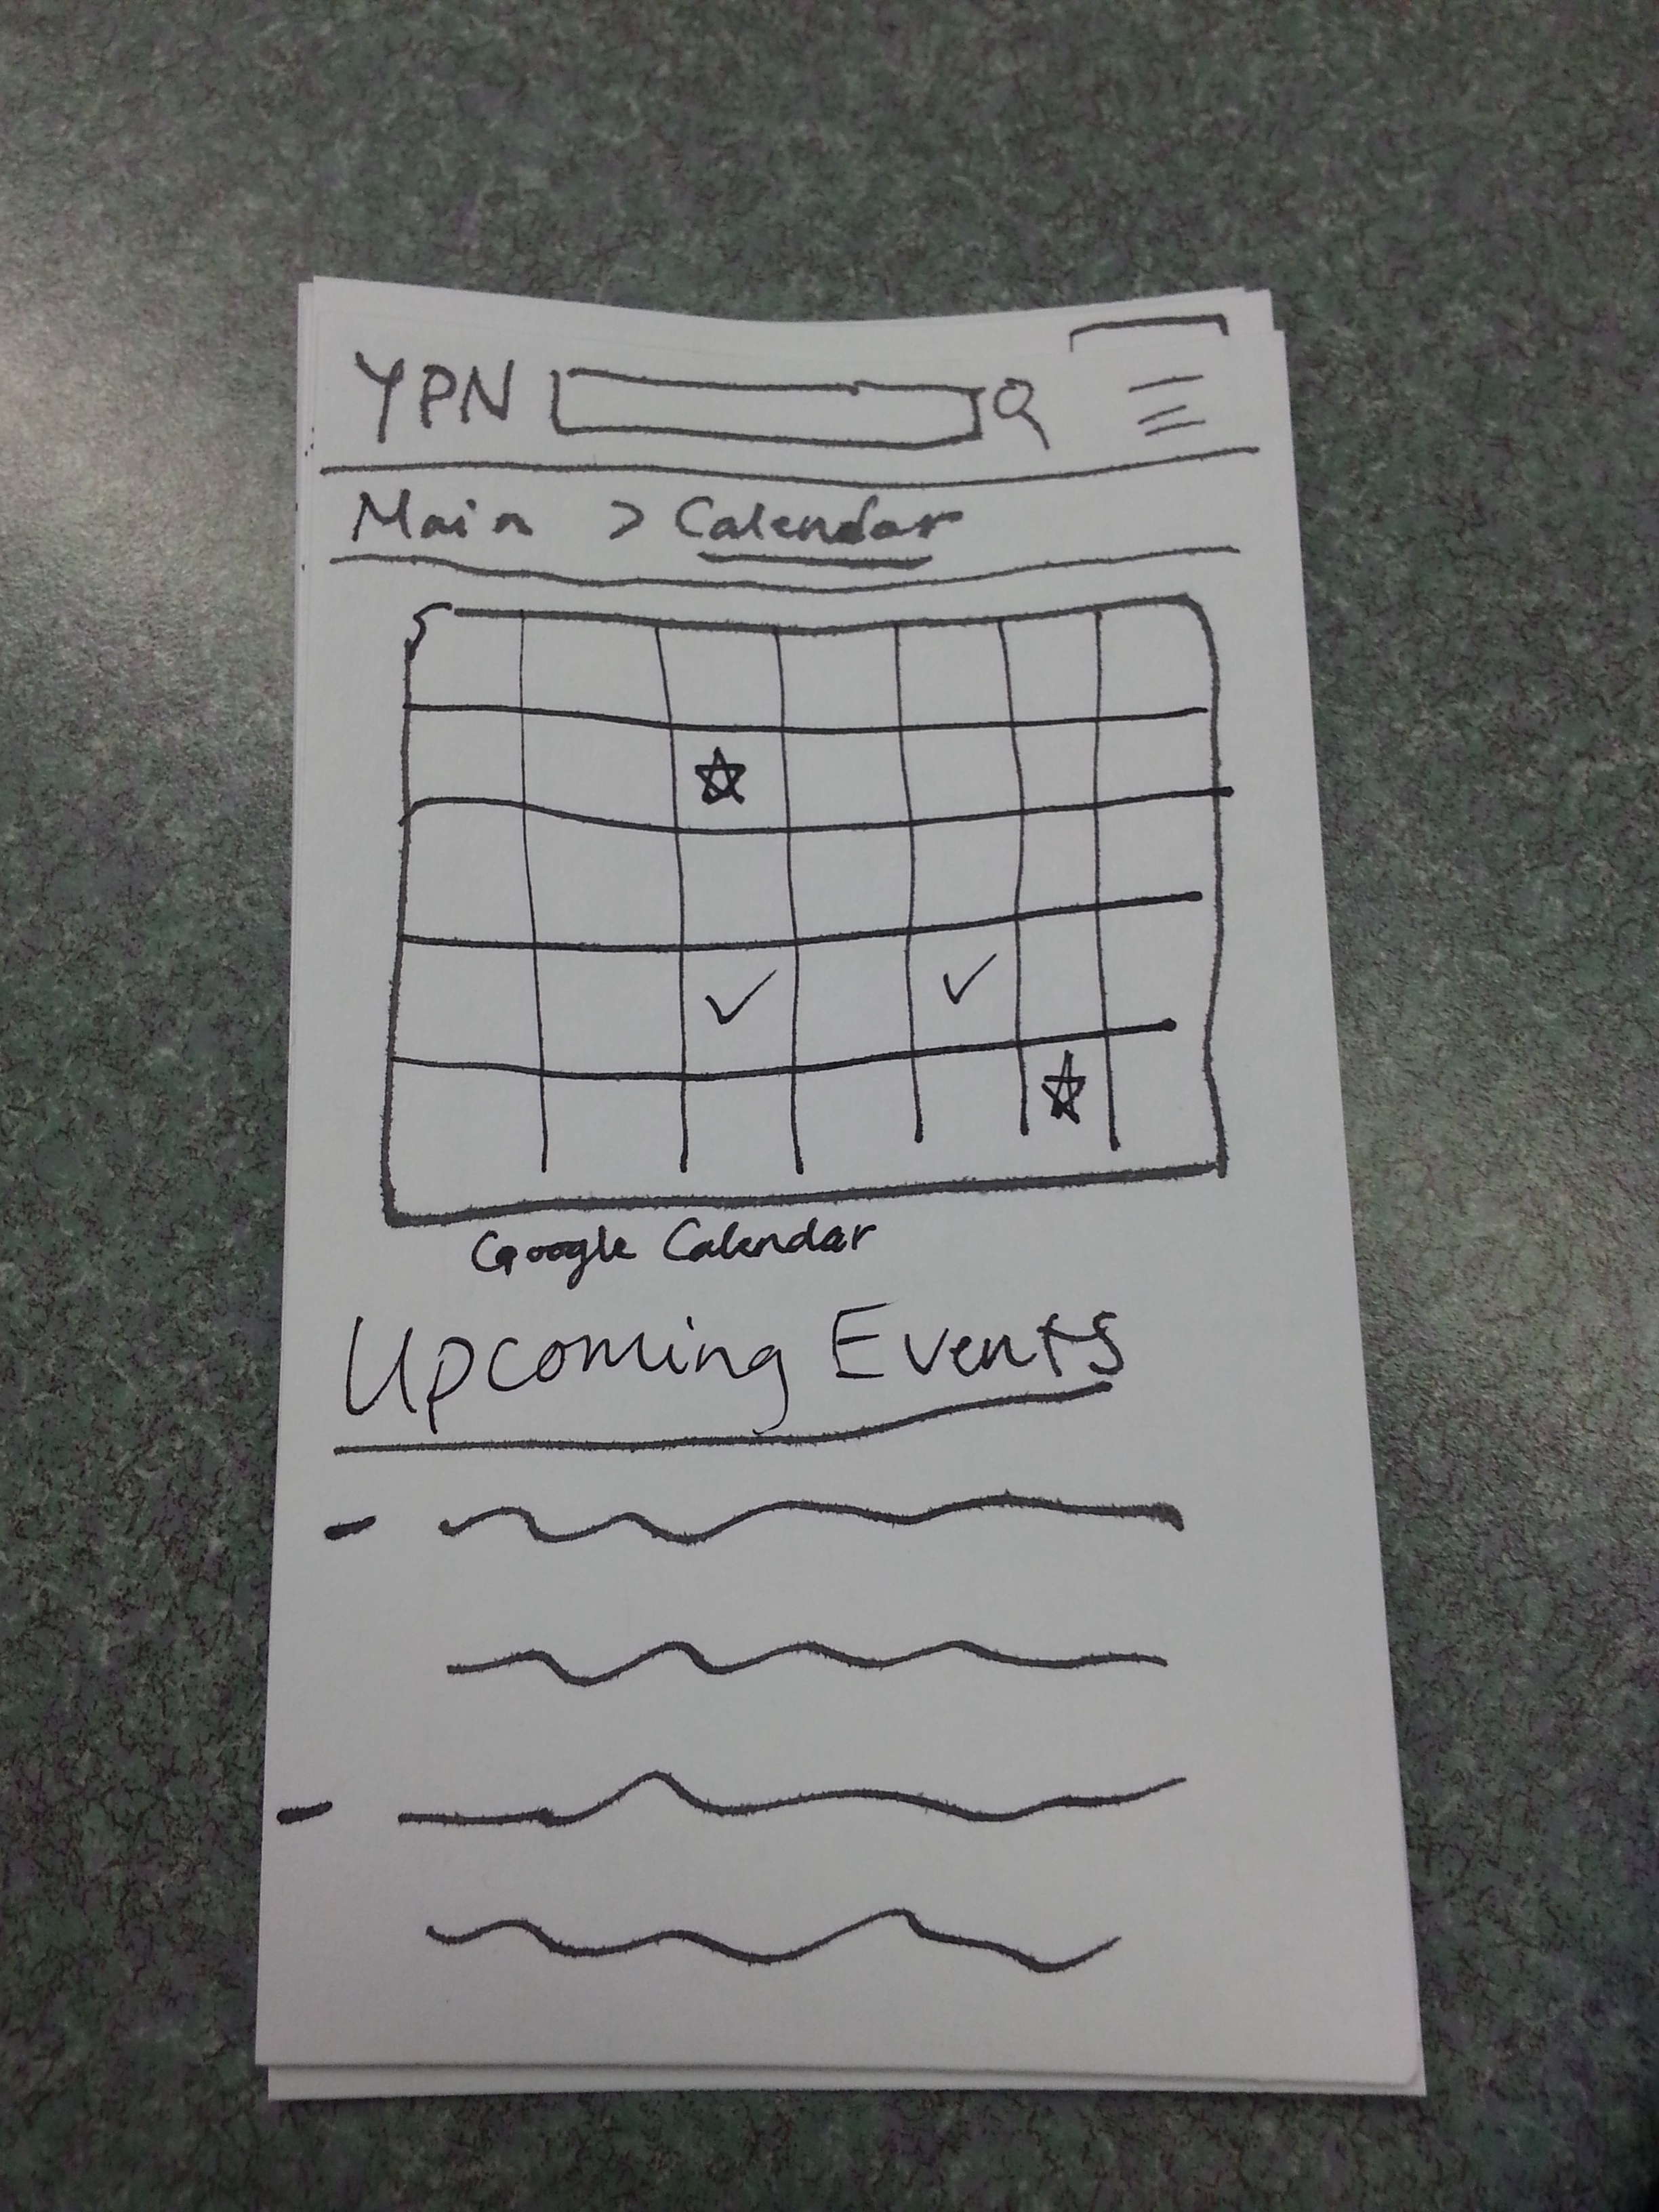 YPN
Main > Calendar
Google Calendar
Upcoming Events